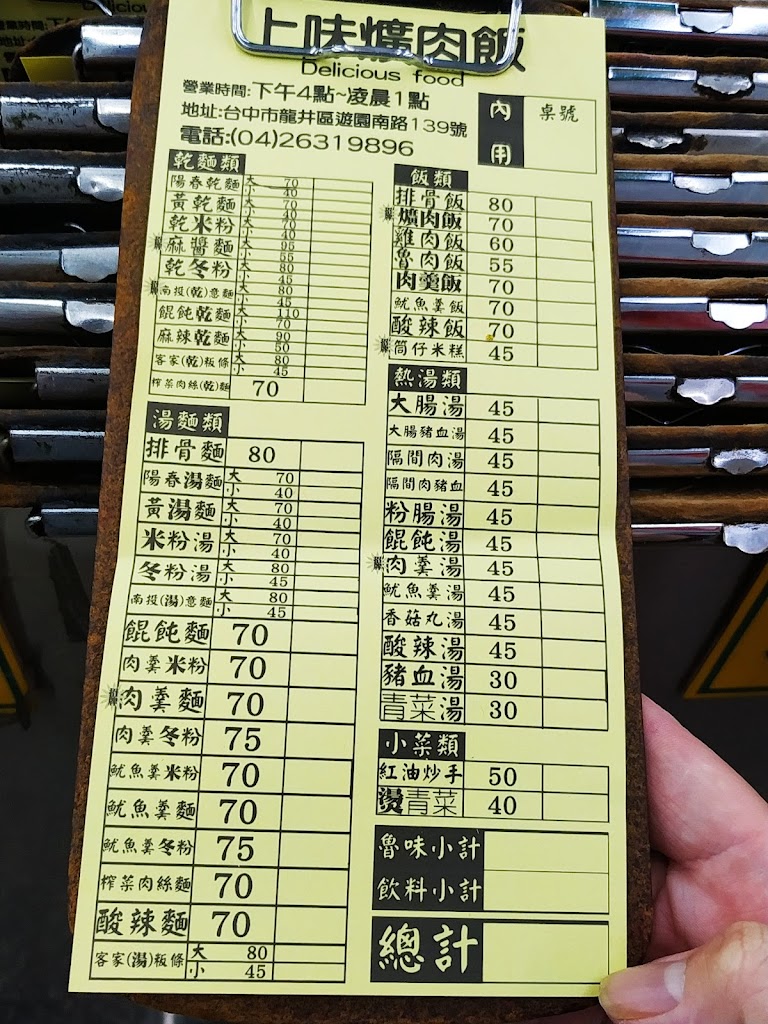 上味爌肉飯
Delicious food
營業時間:下午4點~凌晨1點
地址:台中市龍井區遊園南路139號
電話:(04)26319896
內用
桌號
乾麵類
陽春乾麵 大 70
小 40
黃乾麵 大 70
小 40
乾米粉 大 70
小 40
麻醬麵 大 95
小 55
乾冬粉 大 80
小 45
南投(乾)意麵 大 80
小 45
餛飩乾麵 大 110
小 70
麻辣乾麵 大 90
小 50
客家(乾)粄條 大 80
小 45
榨菜肉絲(乾)麵 70
湯麵類
排骨麵 80
陽春湯麵 大 70
小 40
黃湯麵 大 70
小 40
米粉湯 大 70
小 40
冬粉湯 大 80
小 45
南投(湯)意麵 大 80
小 45
餛飩麵 70
肉羹米粉 70
肉羹麵 70
肉羹冬粉 75
魷魚羹米粉 70
魷魚羹麵 70
魷魚羹冬粉 75
榨菜肉絲麵 70
酸辣麵 70
客家(湯)粄條 大 80
小 45
飯類
排骨飯 80
爌肉飯 70
雞肉飯 60
魯肉飯 55
肉羹飯 70
魷魚羹飯 70
酸辣飯 70
筒仔米糕 45
熱湯類
大腸湯 45
大腸豬血湯 45
隔間肉湯 45
隔間肉豬血 45
粉腸湯 45
餛飩湯 45
肉羹湯 45
魷魚羹湯 45
香菇丸湯 45
酸辣湯 45
豬血湯 30
青菜湯 30
小菜類
紅油炒手 50
燙青菜 40
魯味小計
飲料小計
總計